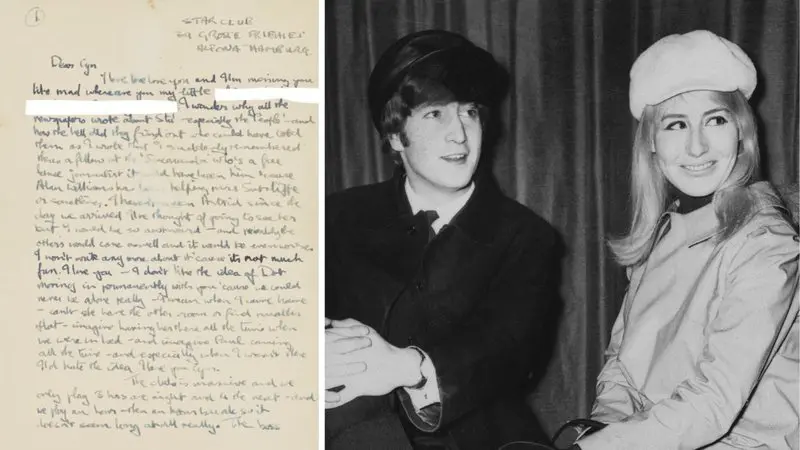 1
STAR CLUB
39 GROSSE FREIHEIT
ALTONA HAMBURG
Dear Cyn
I love love love you and I'm missing you
like mad where are you my little
I wonder why all the
newspapers wrote about Stu - especially the 'People' - and
how the hell did they find out who could have told
them as I wrote that I suddenly remembered
theres a fellow at the who's a free
lance journalist it could have been him 'cause
Allan Williams has been helping Mrs Sutcliffe
or something. I haven't seen Astrid since the
day we arrived I've thought of going to see her
but I would be so awkward - and probably the
others would come as well and it would be even worse.
I won't write any more about it 'cause its not much
fun. I love you - I don't like the idea of Dot
moving in permanently with you 'cause we could
never be alone really - I mean when I come home
- can't she have the other room or find another
flat - imagine having her there all the time when
we were in bed - and imagine Paul coming
all the time - and especially when I wasn't there
I'd hate the idea. I love you Cyn.
The club is massive and we
only play 3 hours one night and 4 the next - and
we play an hour - then an hours break so it
doesn't seem long at all really. The boss